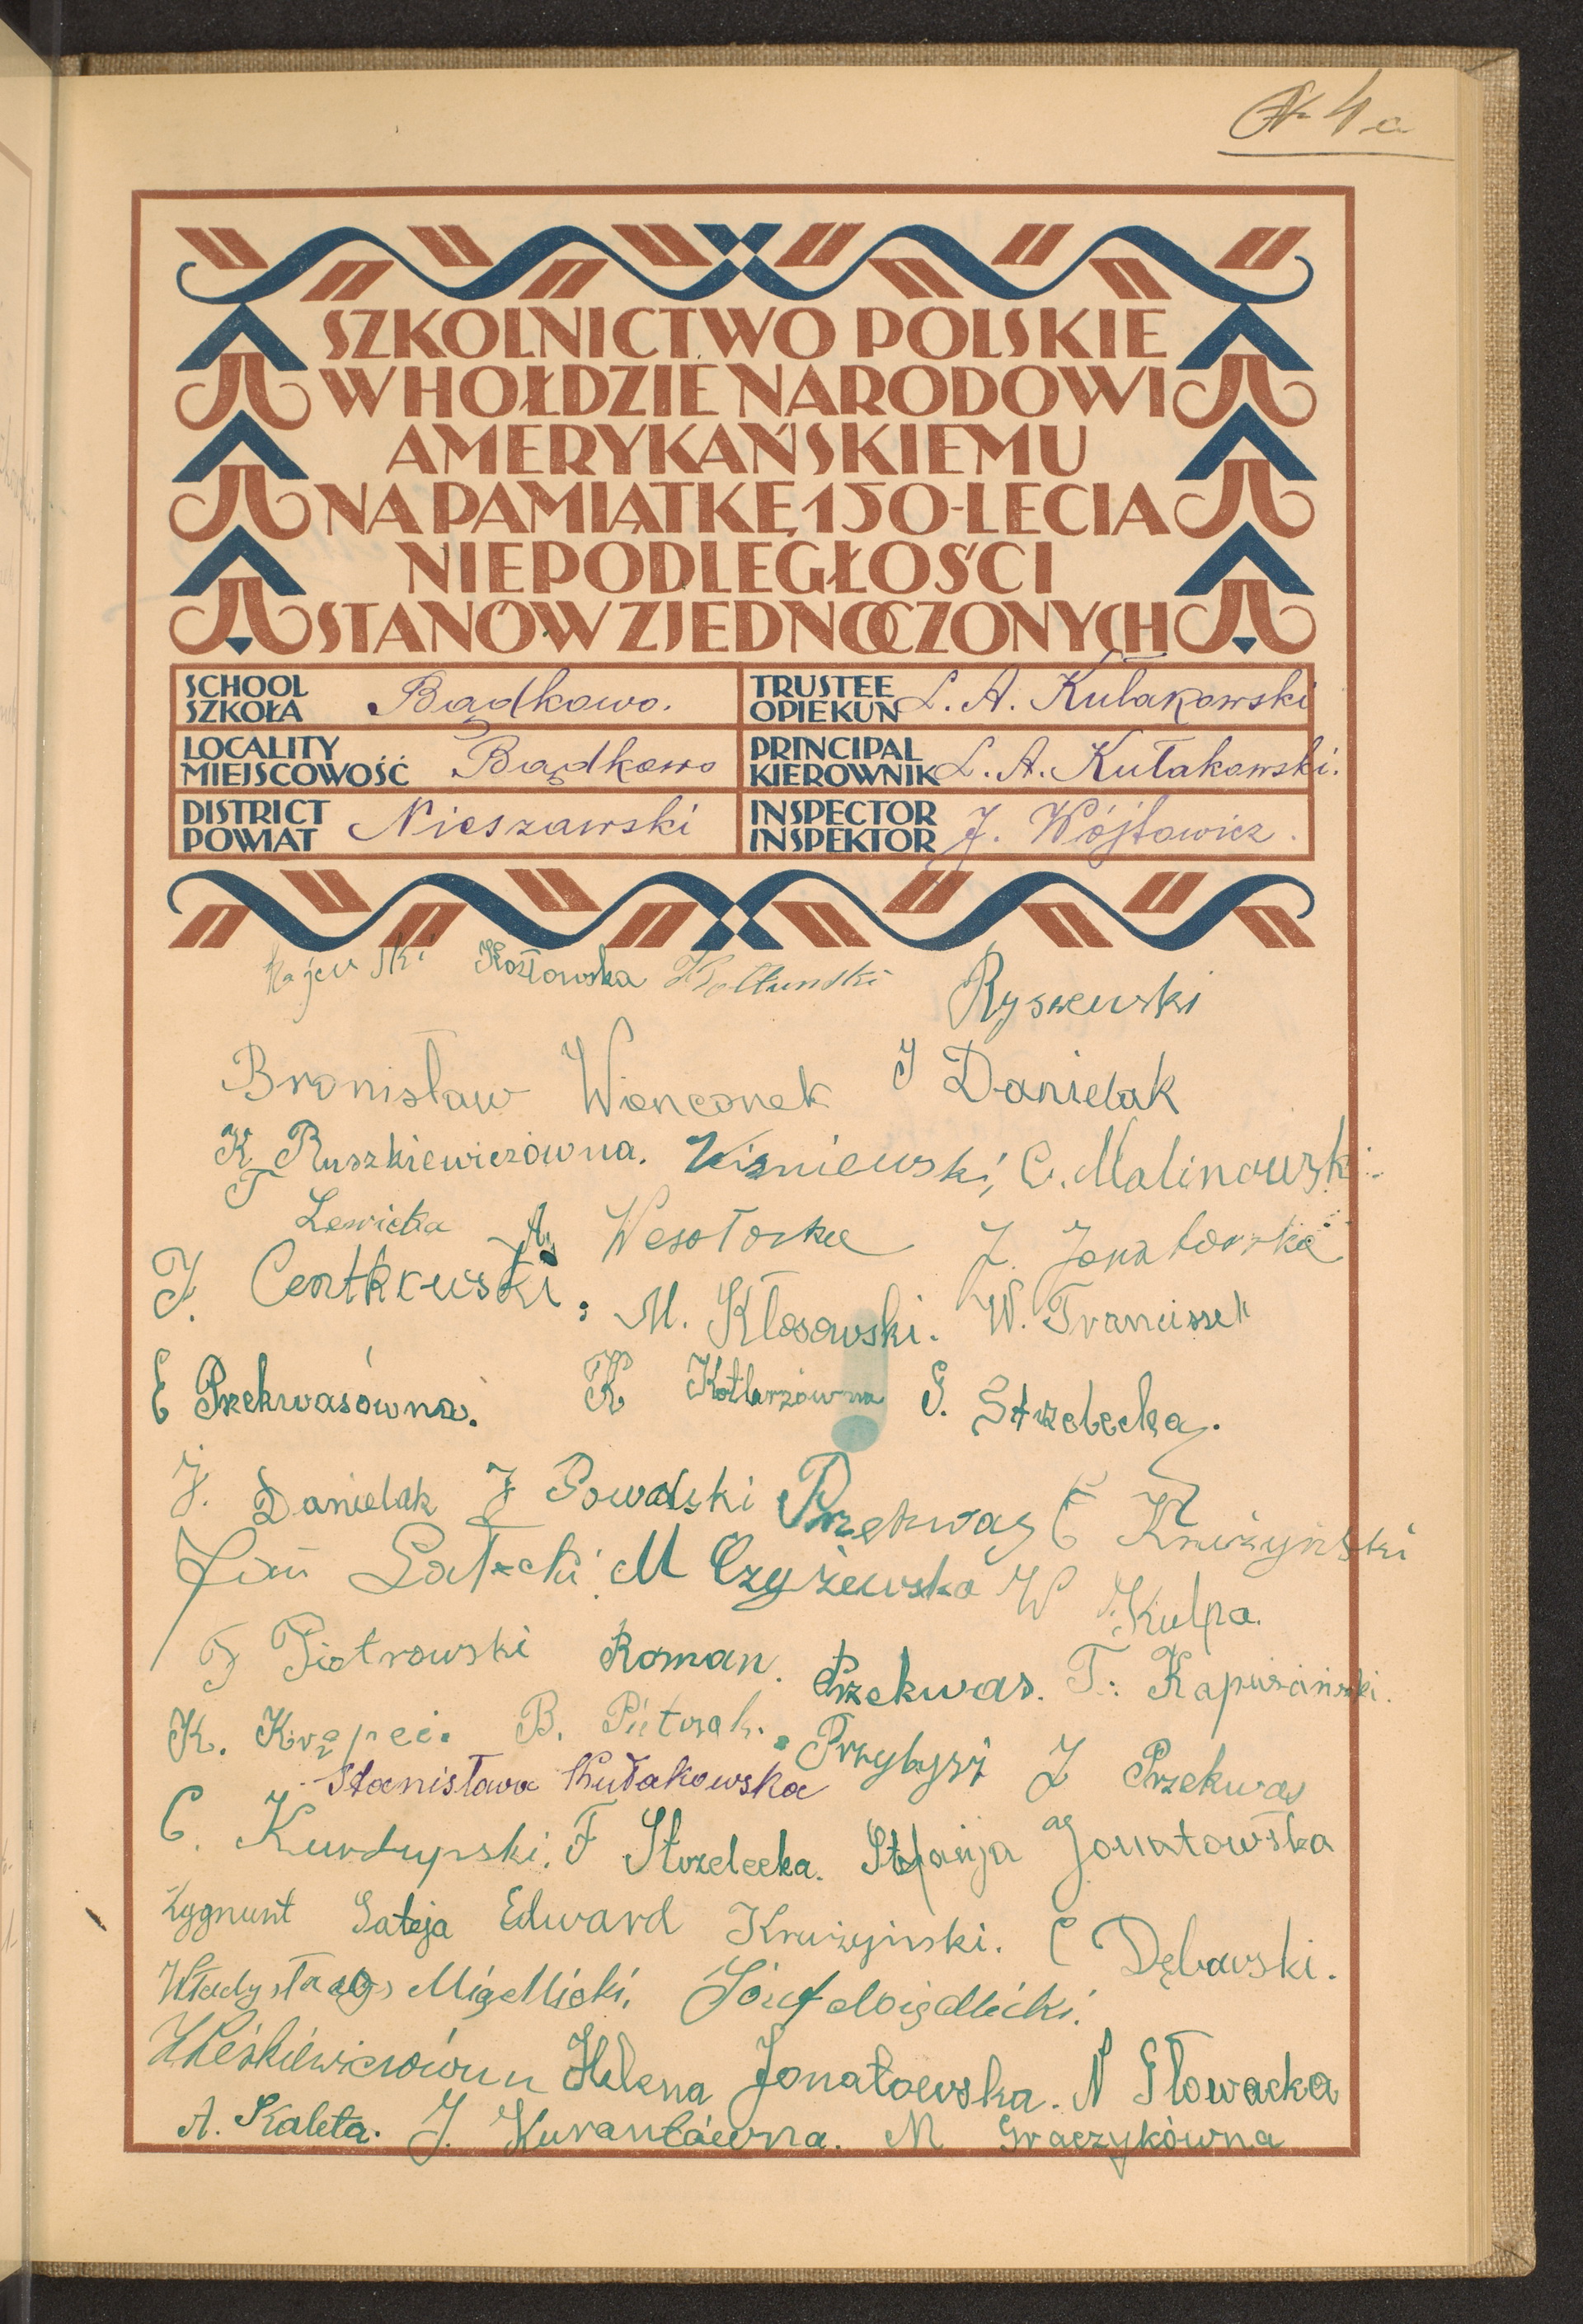 SZKOLNICTWO POLSKIE
W HOŁDZIE NARODOWI
AMERYKAŃSKIEMU
NA PAMIĄTKĘ 150-LECIA
NIEPODLEGŁOŚCI
STANÓW ZJEDNOCZONYCH
SCHOOL SZKOŁA Bądkowo.
TRUSTEE OPIEKUN L. A. Kułakowski
LOCALITY MIEJSCOWOŚĆ Bądkowo
PRINCIPAL KIEROWNIK L. A. Kułakowski.
DISTRICT POWIAT Nieszawski
INSPECTOR INSPEKTOR J. Wójtowicz.
Majewski Kozłowska Ryszewski
Bronisław J Danielak
K Ruszkiewiczówna. Wiśniewski, C. Malinowski
Lewicka A. Wesołoska J. Jonatowska
J. Centkowski. M. Kłosowski. W. Franciszek
E Przekwasówna. K Kotlarzówna G. Strzelecka.
J. Danielak J Powalski Przekwas C Krużyński
Jan Gałecki M Czyżewska W Kulpa.
F Piotrowski Roman. Przekwas. T. Kapuściński.
K. Krępeć. B. Pietrzak. Przybysz J Przekwas
Stanisława Kułakowska
C. Kurdupski. F Strzelecka. Stefanja Jonatowska
Zygmunt Gateja Edward Krużyński. C Dębowski.
Władysław Migdlicki. Józef
Helena Jonatowska. N Słowacka
A. Kaleta. J. Kurantówna. M Graczykówna